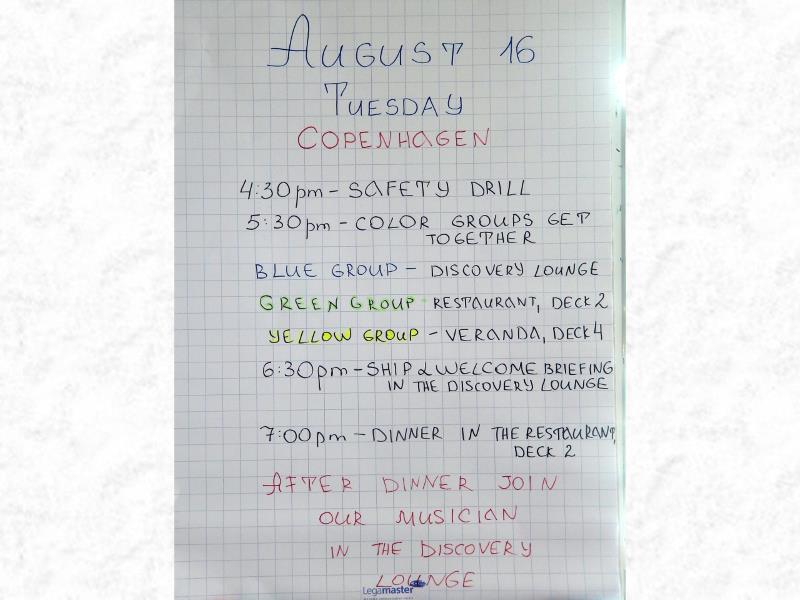 AUGUST 16
TUESDAY
COPENHAGEN
4:30pm - SAFETY DRILL
5:30pm - COLOR GROUPS GET
TOGETHER
BLUE GROUP - DISCOVERY LOUNGE
GREEN GROUP RESTAURANT, DECK 2
YELLOW GROUP - VERANDA, DECK 4
6:30pm - SHIP & WELCOME BRIEFING
IN THE DISCOVERY LOUNGE
7:00pm - DINNER IN THE RESTAURANT,
DECK 2
AFTER DINNER JOIN
OUR MUSICIAN
IN THE DISCOVERY
LOUNGE
Legamaster